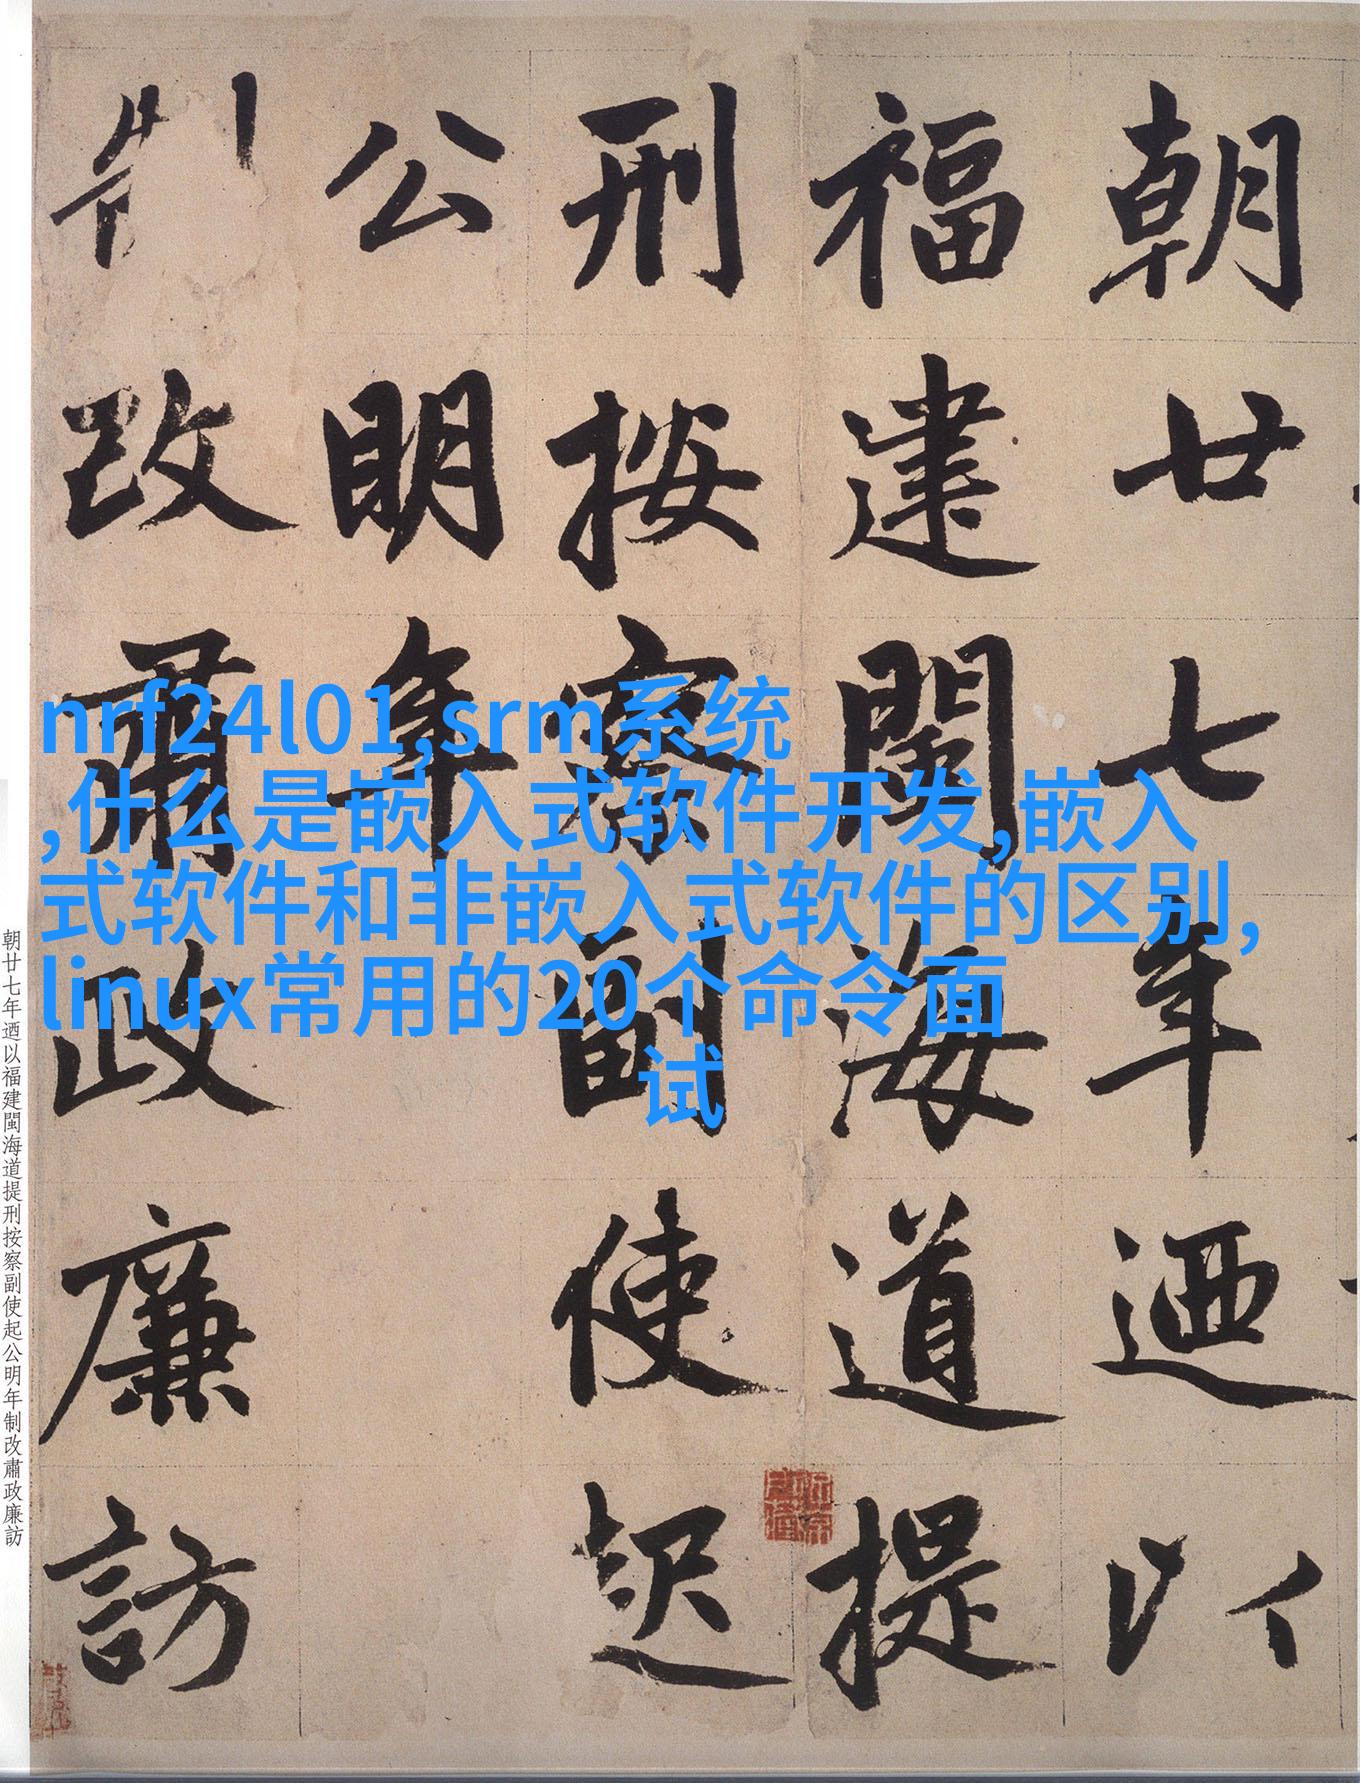 朝廿七年迺以
福建閩海道提
刑按察副使起
公明年
制改肅政廉訪
朝廿七年迺以福建閩海道提刑按察副使起公明年制改肅政廉訪
nrf24l01,srm系统
,什么是嵌入式软件开发,嵌入
式软件和非嵌入式软件的区别,
linux常用的20个命令面
试